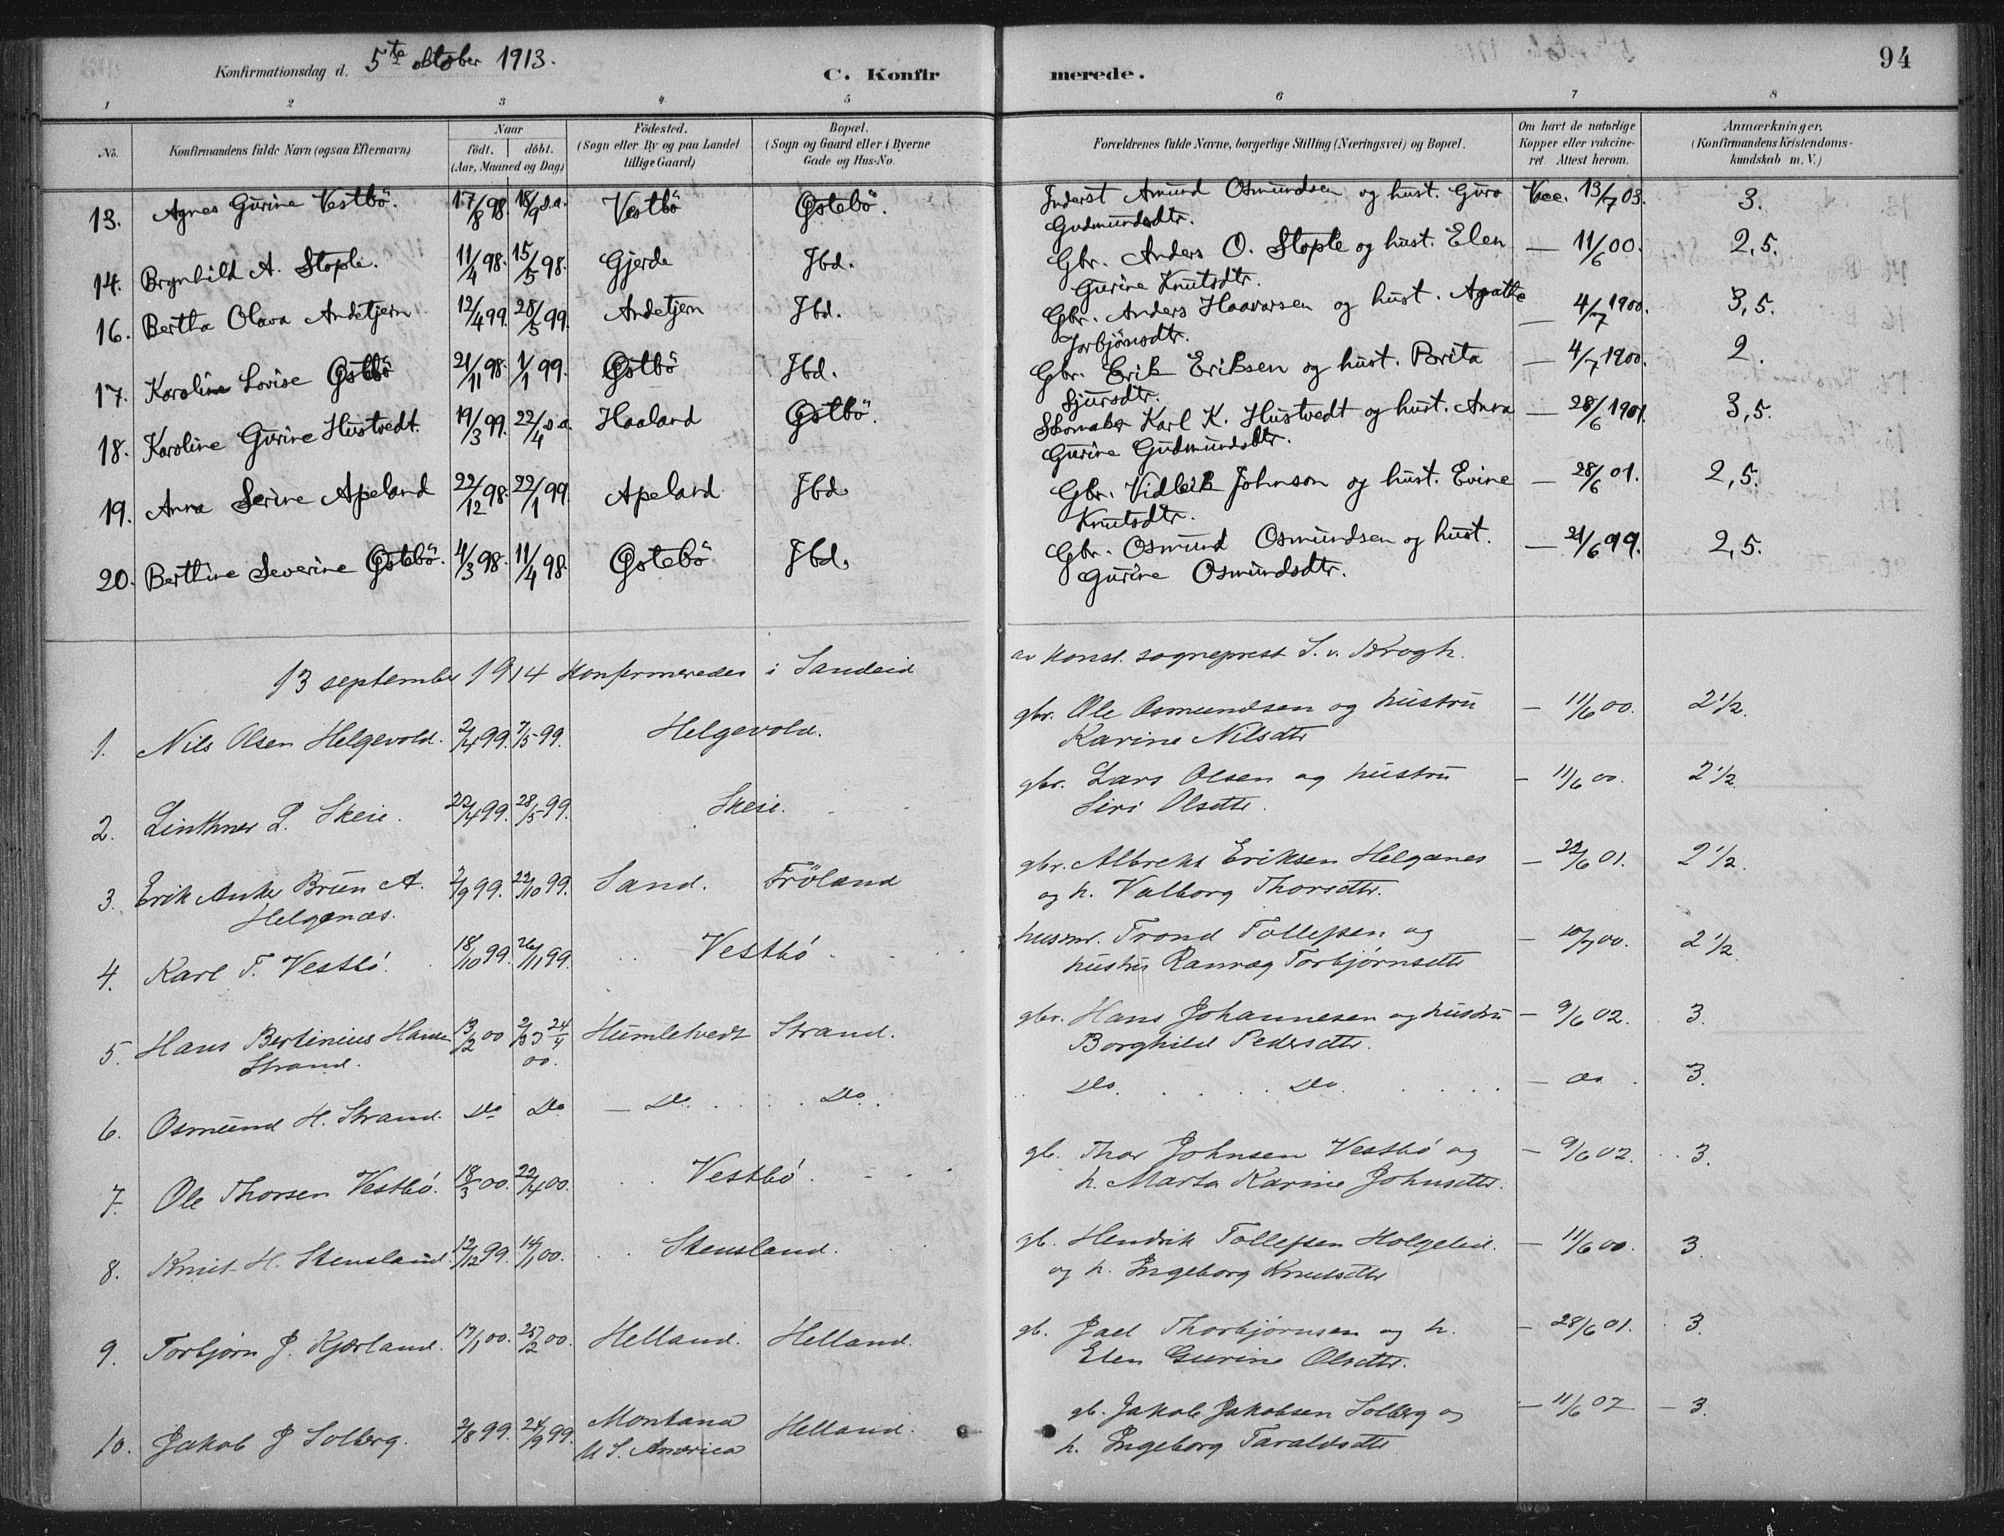 Konfirmationsdag d. 5te oktober 1913. C. Konfirmerede. 94
1 2 3 4 5 6 7 8
No. Konfirmandens fulde Navn (ogsaa Efternavn) Naar födt. döbt. (Aar, Maaned og Dag) Födested. (Sogn eller By og paa Landet tillige Gaard) Bopæl. (Sogn og Gaard eller i Byerne Gade og Hus-No. Forældrenes fulde Navne, borgerlige Stilling (Næringsvei) og Bopæl. Om havt de naturlige Kopper eller vakcineret. Attest herom. Anmærkninger. (Konfirmandens Kristendomskundskab m. V.)
13. Agnes Gurine Vestbö. 17/8 98. 18/9 s.a. Vestbö Östebö. Inderst Amund Osmundsen og hust. Guro Vac. 13/7 03. 3.
Gudmundsdtr.
14. Brynhild A. Stople. 11/4 98. 15/5 98. Gjerde Ibd. Gbr. Anders O. Stople og hust. Elen — 11/6 00. 2,5.
Gurine Knutsdtr.
16. Bertha Olava Andetjern 12/4 99. 28/5 99. Andetjern Ibd. Gbr. Anders Haavarsen og hust. Agathe — 4/7 1900. 3,5.
Torbjörnsdtr.
17. Karoline Lovise Östbö 21/11 98. 1/1 99. Östbö Ibd. Gbr. Erik Eriksen og hust. Brita — 4/7 1900. 2.
Sjursdtr.
18. Karoline Gurine Hustvedt. 19/3 99. 22/4 s.a. Haaland Östbö. Skomaker Karl K. Hustvedt og hust. Anna — 28/6 1901. 3,5.
Gurine Gudmundsdtr.
19. Anna Serine Apeland 22/12 98. 22/1 99. Apeland Ibd. Gbr. Vidleik Johnson og hust. Evine — 28/6 01. 2,5.
Knutsdtr.
20. Berthine Severine Östebö. 4/3 98. 11/4 98. Östebö Ibd. Gbr. Osmund Osmundsen og hust. — 21/6 99. 2,5.
Gurine Osmundsdtr.
13 september 1914 konfirmeredes i Sandeid av konst. sogneprest S. v. Krogh.
1. Nils Olsen Helgevold. 2/4 99. 7/5 99. Helgevold. gbr. Ole Osmundsen og hustru — 11/6 00. 2 1/2.
Karine Nilsdtr
2. Linthner L. Skeie. 22/4 99. 28/5 99. Skeie. gbr. Lars Olsen og hustru — 11/6 00. 2 1/2.
Siri Olsdtr.
3. Erik Anker Brun A. 2/9 99. 22/10 99. Sand. Fröland gbr. Albrekt Eriksen Helganes — 22/6 01. 2 1/2.
Helganæs. og h. Valborg Thorsdtr.
4. Karl T. Vestbó. 18/10 99. 26/11 99. Vestbó husm. Trond Tollefsen og — 10/7 00. 2 1/2.
hustru Ranveg Torbjørnsdtr
5. Hans Bertinius Hansen 13/2 00 2/3 24/4 Humletvedt Strand. gbr. Hans Johannesen og hustru — 9/6 02. 3.
Strand. 00. Borghild Pedersdtr.
6. Osmund H. Strand. Do Do — Do. Do. Do. Do. — do. 3.
7. Ole Thorsen Vestbó. 18/3 00. 22/4 00. Vestbó. gb. Thor Johnsen Vestbó og — 9/6 02. 3.
h. Marta Karine Johnsdtr.
8. Knut H. Stensland. 12/12 99. 14/1 00. Stensland. gb. Hendrik Tollefsen Holgelid. — 11/6 00. 3.
og h. Ingeborg Knutsdtr
9. Torbjørn J. Kjærland. 17/1 00. 25/2 00. Helland. Helland. gb. Jael Thorbjørnsen og h. — 28/6 01. 3.
Elen Gurine Olsdtr.
10. Jakob J Solberg. 2/8 99. 24/9 99. Montana Helland. gb. Jakob Jakobsen Solberg og — 11/6 07 — 3.
U S. America h. Ingeborg Taraldsdtr